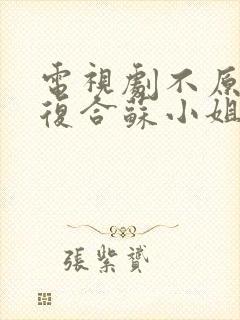 電視劇不原
復合蘇小姐
張紫贇